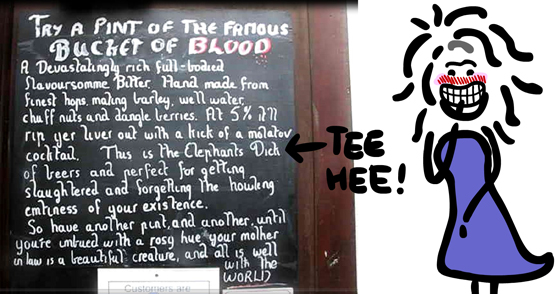 TRY A PINT OF THE FAMOUS
BUCKET OF BLOOD
A Devastatingly rich full-bodied
flavoursomme Bitter. Hand made from
finest hops, maling barley, well water,
chuff nuts and dangle berries. At 5% it'll
rip yer liver out with a kick of a molatov
cocktail. This is the Elephants Dick
of beers and perfect for getting
slaughtered and forgetting the howling
emtiness of your existence.
So have another pint, and another, until
you're imbued with a rosy hue your mother
in law is a beautifull creature, and all is well
with the
WORLD
Customers are
TEE
HEE!